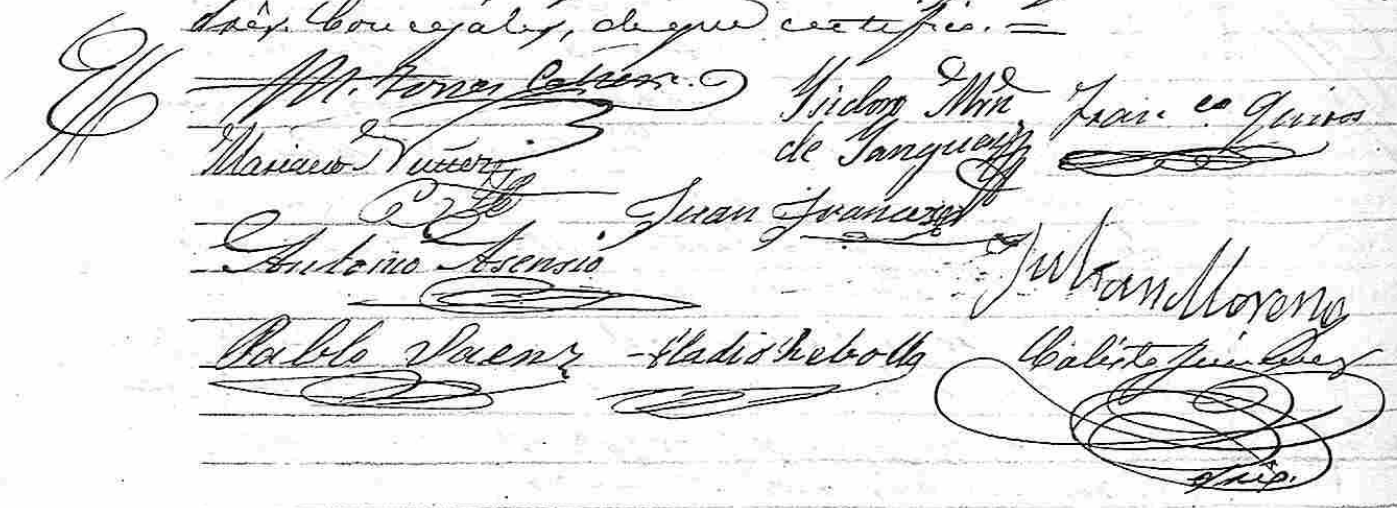 Concejales, de que certifico. =
M. Torres
Isidoro Mın de Sanguesa
Fran.co Quiros
Mariano Nuñez
Juan Frances
Antonio Asensio
Julian Moreno
Pablo Saenz
Eladio Rebollo
Calisto
Srio.